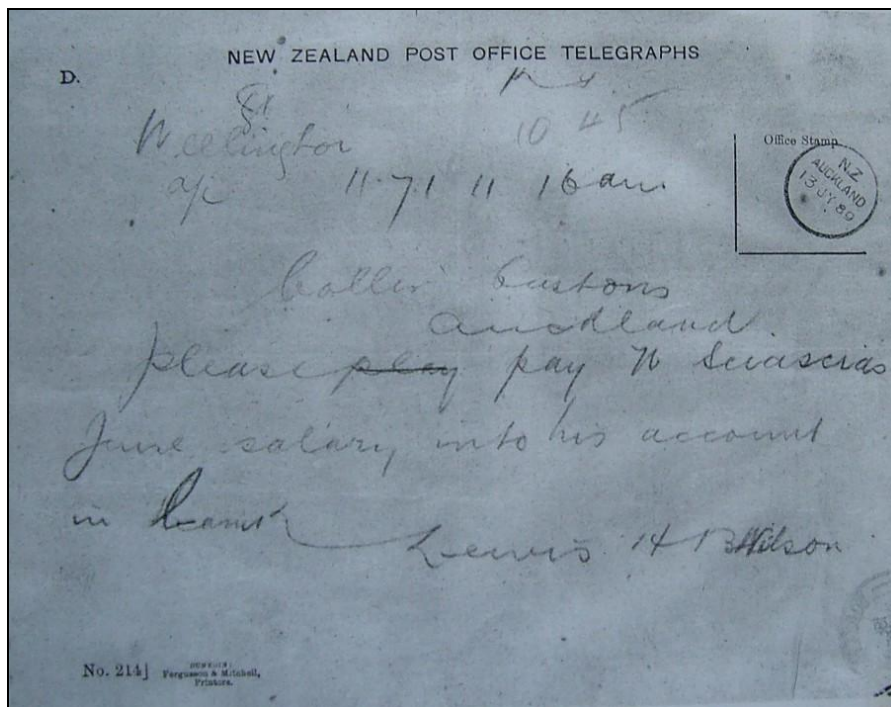 NEW ZEALAND POST OFFICE TELEGRAPHS
D.
Wellington 10 45
11 71 11 16am
Office Stamp
N.Z.
AUCKLAND
13 JY 80
Customs
Auckland
please play pay N Sciascias
June salary into his account
in bank
Lewis H B Wilson
No. 214
DUNEDIN:
Fergusson & Mitchell,
Printers.